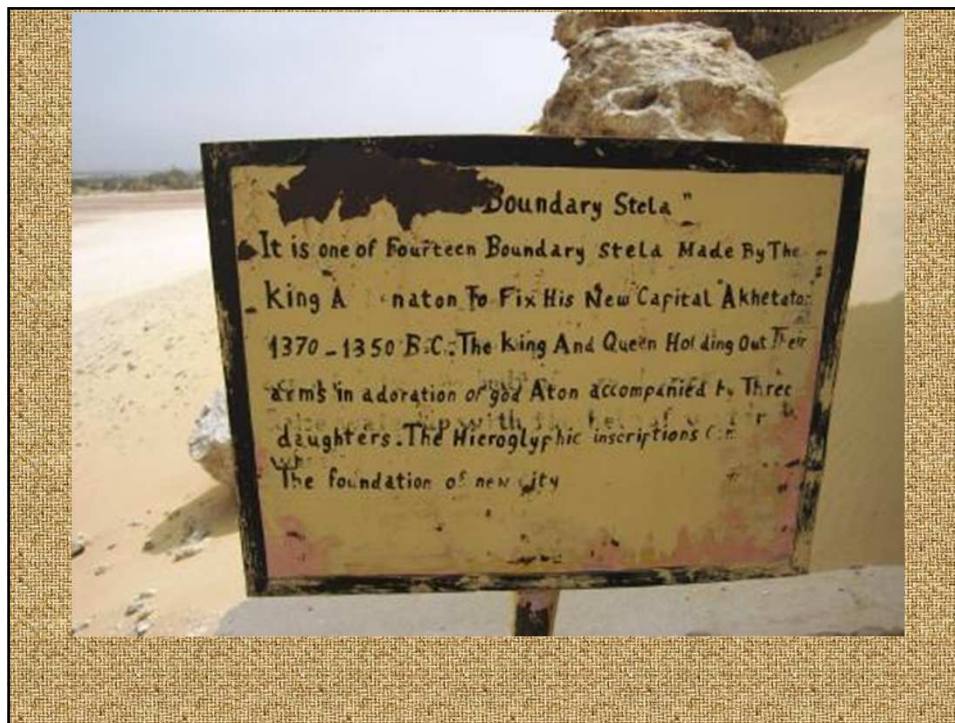 Boundary Stela"
It is one of Fourteen Boundary Stela Made By The
King A naton To Fix His New Capital Akhetato
1370-1350 B.C. The King And Queen Holding Out Their
arms in adoration of god Aton accompanied by Three
daughters. The Hieroglyphic inscriptions
The foundation of new city